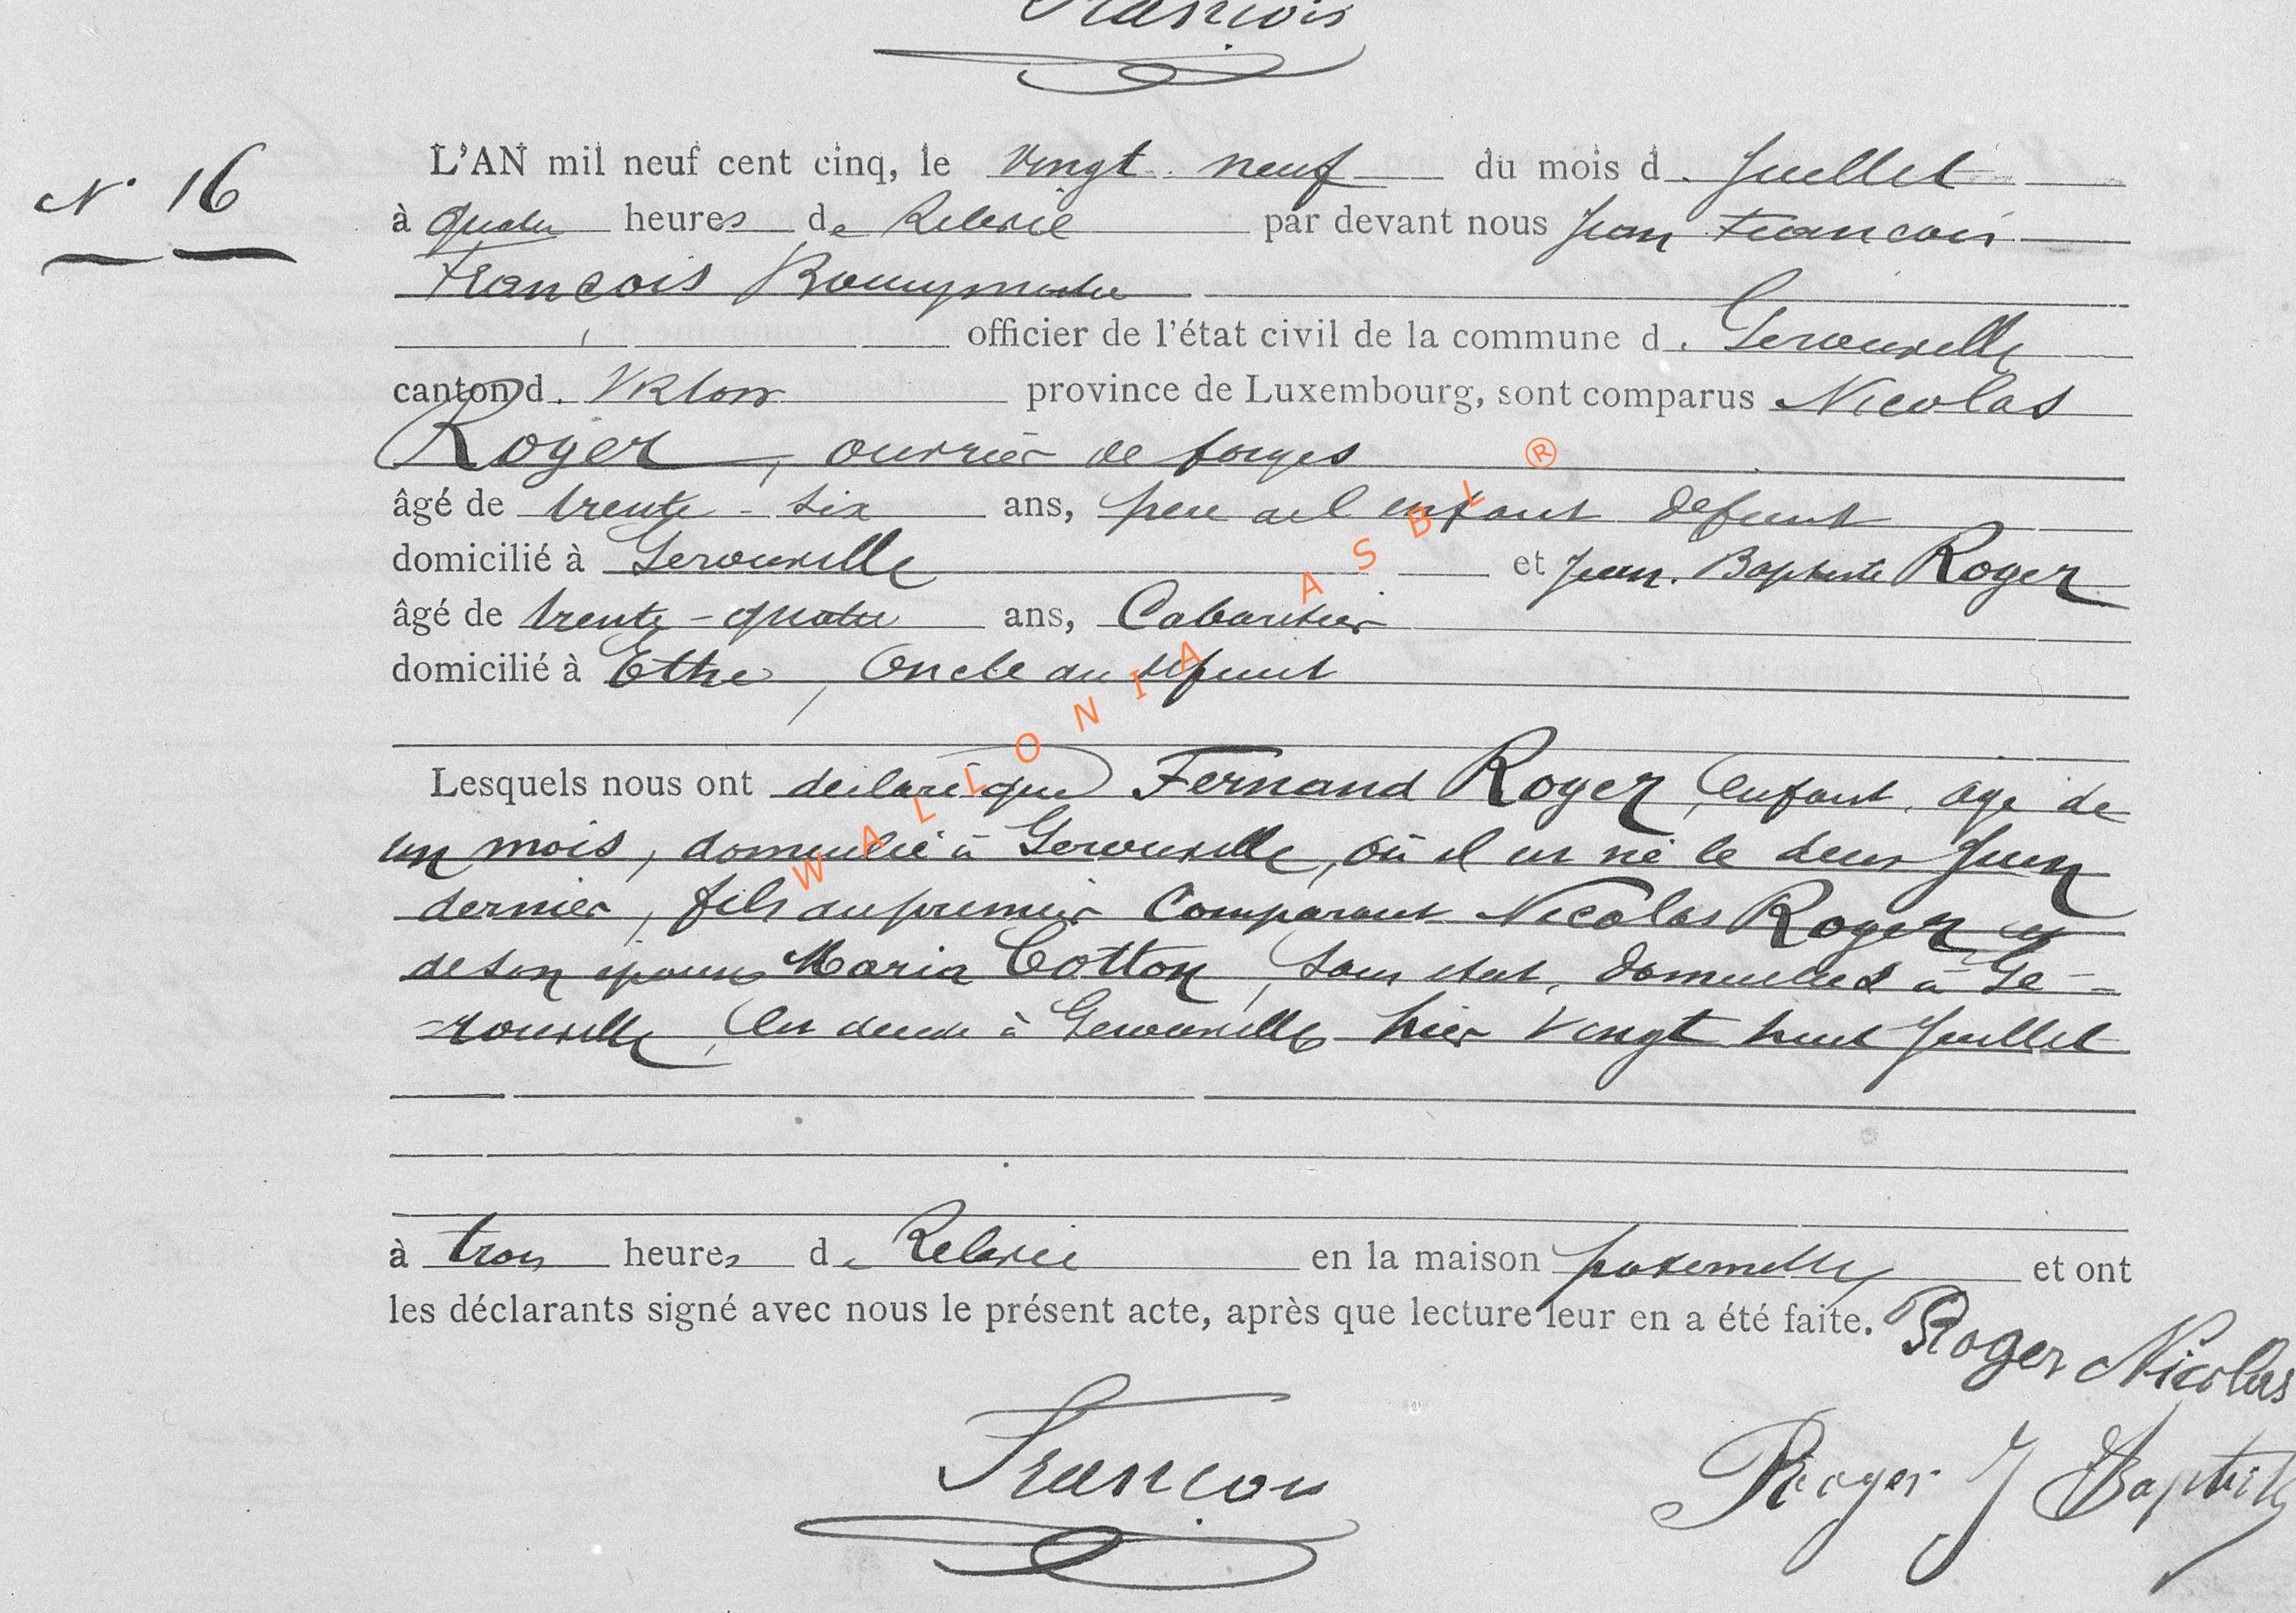 François
N° 16
L'AN mil neuf cent cinq, le vingt neuf du mois d. Juillet
à quatre heures de Relevée par devant nous Jean François
François Bourgmestre
officier de l'état civil de la commune d. Gerouville
canton d. Virton province de Luxembourg, sont comparus Nicolas
Roger, ouvrier de forges
âgé de trente-six ans, père de l'enfant défunt
domicilié à Gerouville et Jean-Baptiste Roger
âgé de trente-quatre ans, Cabaretier
domicilié à Ethe, Oncle au défunt
Lesquels nous ont déclaré que Fernand Roger, enfant, âgé de
un mois, domicilié à Gerouville, où il est né le deux Juin
dernier, fils du premier Comparant Nicolas Roger et
de son épouse Maria Cotton, sans état, domiciliés à Gé-
-rouville, est décédé à Gerouville hier vingt huit Juillet
à trois heures de Relevée en la maison paternelle et ont
les déclarants signé avec nous le présent acte, après que lecture leur en a été faite.
Roger Nicolas
François
Roger J Baptiste
WALLONIA ASBL ®